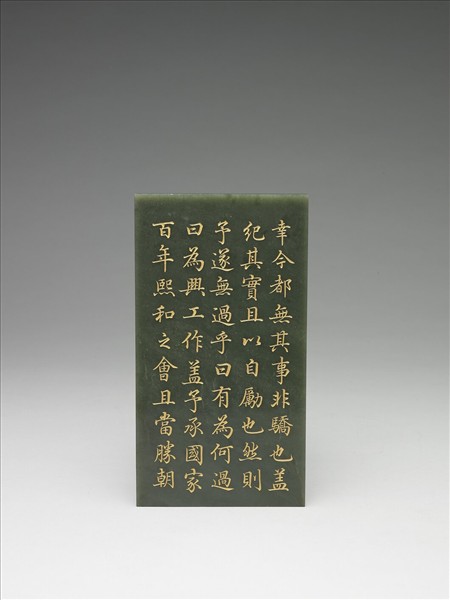 幸今都無其事非驕也盖
紀其實且以自勵也然則
予遂無過乎曰有為何過
曰為興工作盖予承國家
百年熙和之會且當勝朝